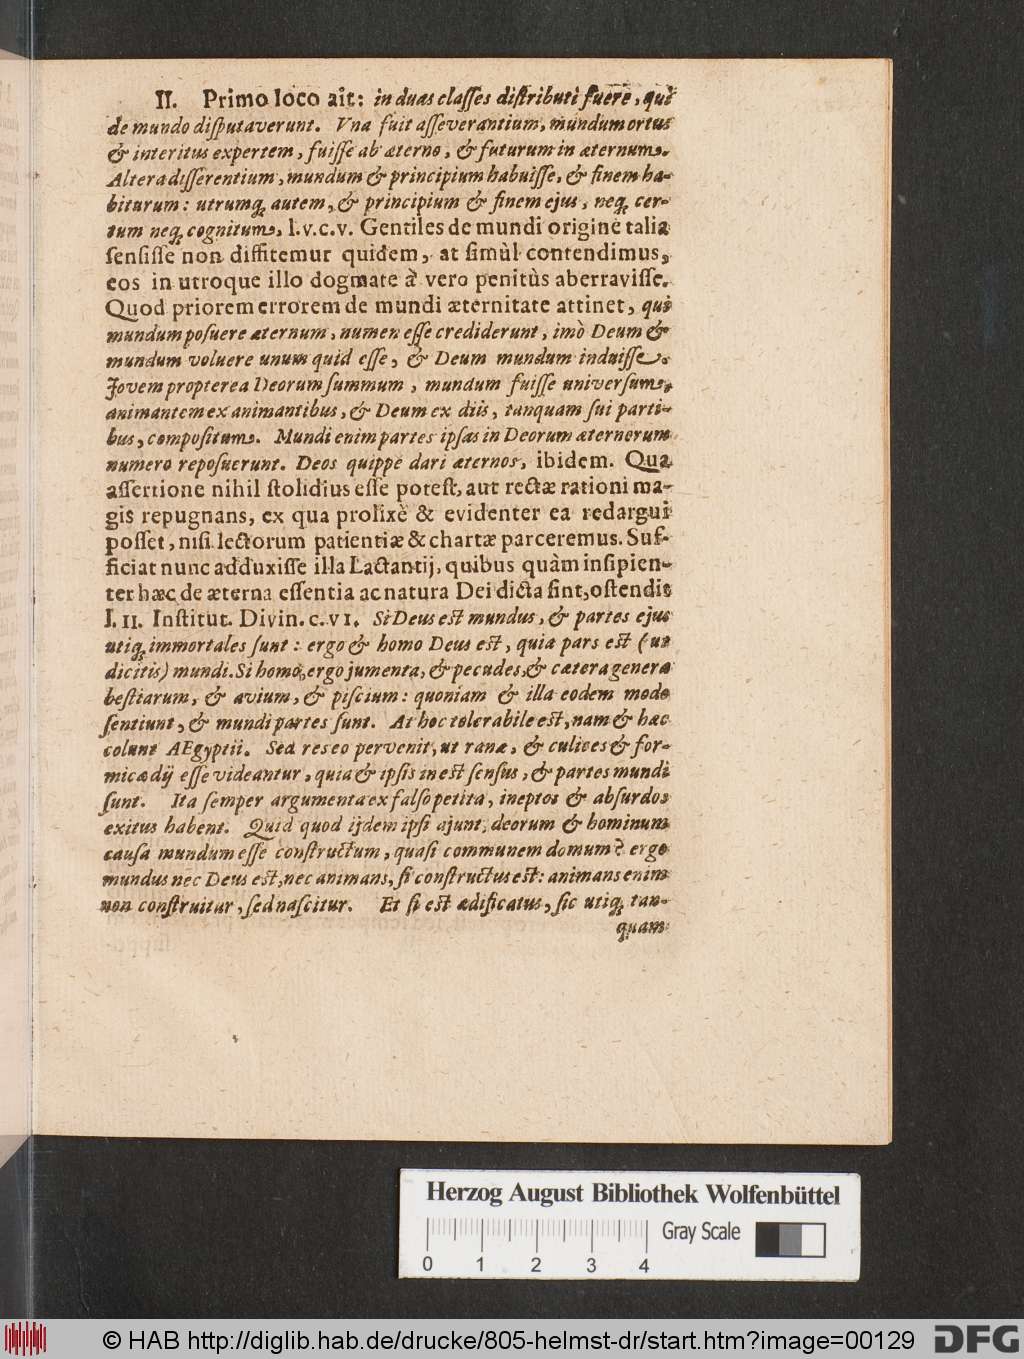 II. Primo loco ait: in duas classes distributi fuere, qui
de mundo disputaverunt. Vna fuit asseverantium, mundum ortus
& interitus expertem, fuisse ab æterno, & futurum in æternum.
Altera disserentium, mundum & principium habuisse, & finem ha-
biturum: utrumq; autem, & principium & finem ejus, neq; cer-
tum neq; cognitum, l.v.c.v. Gentiles de mundi origine talia
sensisse non diffitemur quidem, at simùl contendimus,
eos in utroque illo dogmate à vero penitùs aberravisse.
Quod priorem errorem de mundi æternitate attinet, qui
mundum posuere æternum, numen esse crediderunt, imò Deum &
mundum voluere unum quid esse, & Deum mundum induisse.
Jovem propterea Deorum summum, mundum fuisse universum,
animantem ex animantibus, & Deum ex diis, tanquam sui parti-
bus, compositum. Mundi enim partes ipsas in Deorum æternorum
numero reposuerunt. Deos quippe dari æternos, ibidem. Qua
assertione nihil stolidius esse potest, aut rectæ rationi ma-
gis repugnans, ex qua prolixè & evidenter ea redargui
posset, nisi lectorum patientiæ & chartæ parceremus. Suf-
ficiat nunc adduxisse illa Lactantij, quibus quàm insipien-
ter hæc de æterna essentia ac natura Dei dicta sint, ostendit
l. II. Institut. Divin. c. VI. Si Deus est mundus, & partes ejus
utiq; immortales sunt: ergo & homo Deus est, quia pars est (ut
dicitis) mundi. Si homo, ergo jumenta, & pecudes, & cætera genera
bestiarum, & avium, & piscium: quoniam & illa eodem modo
sentiunt, & mundi partes sunt. At hoc tolerabile est, nam & hæc
colunt AEgyptii. Sed res eo pervenit, ut ranæ, & culices & for-
micæ dij esse videantur, quia & ipsis inest sensus, & partes mundi
sunt. Ita semper argumenta ex falso petita, ineptos & absurdos
exitus habent. Quid quod ijdem ipsi ajunt, deorum & hominum
causa mundum esse constructum, quasi communem domum? ergo
mundus nec Deus est, nec animans, si constructus est: animans enim
non construitur, sed nascitur. Et si est ædificatus, sic utiq; tan-
quam
Herzog August Bibliothek Wolfenbüttel
Gray Scale
0 1 2 3 4
© HAB http://diglib.hab.de/drucke/805-helmst-dr/start.htm?image=00129
DFG